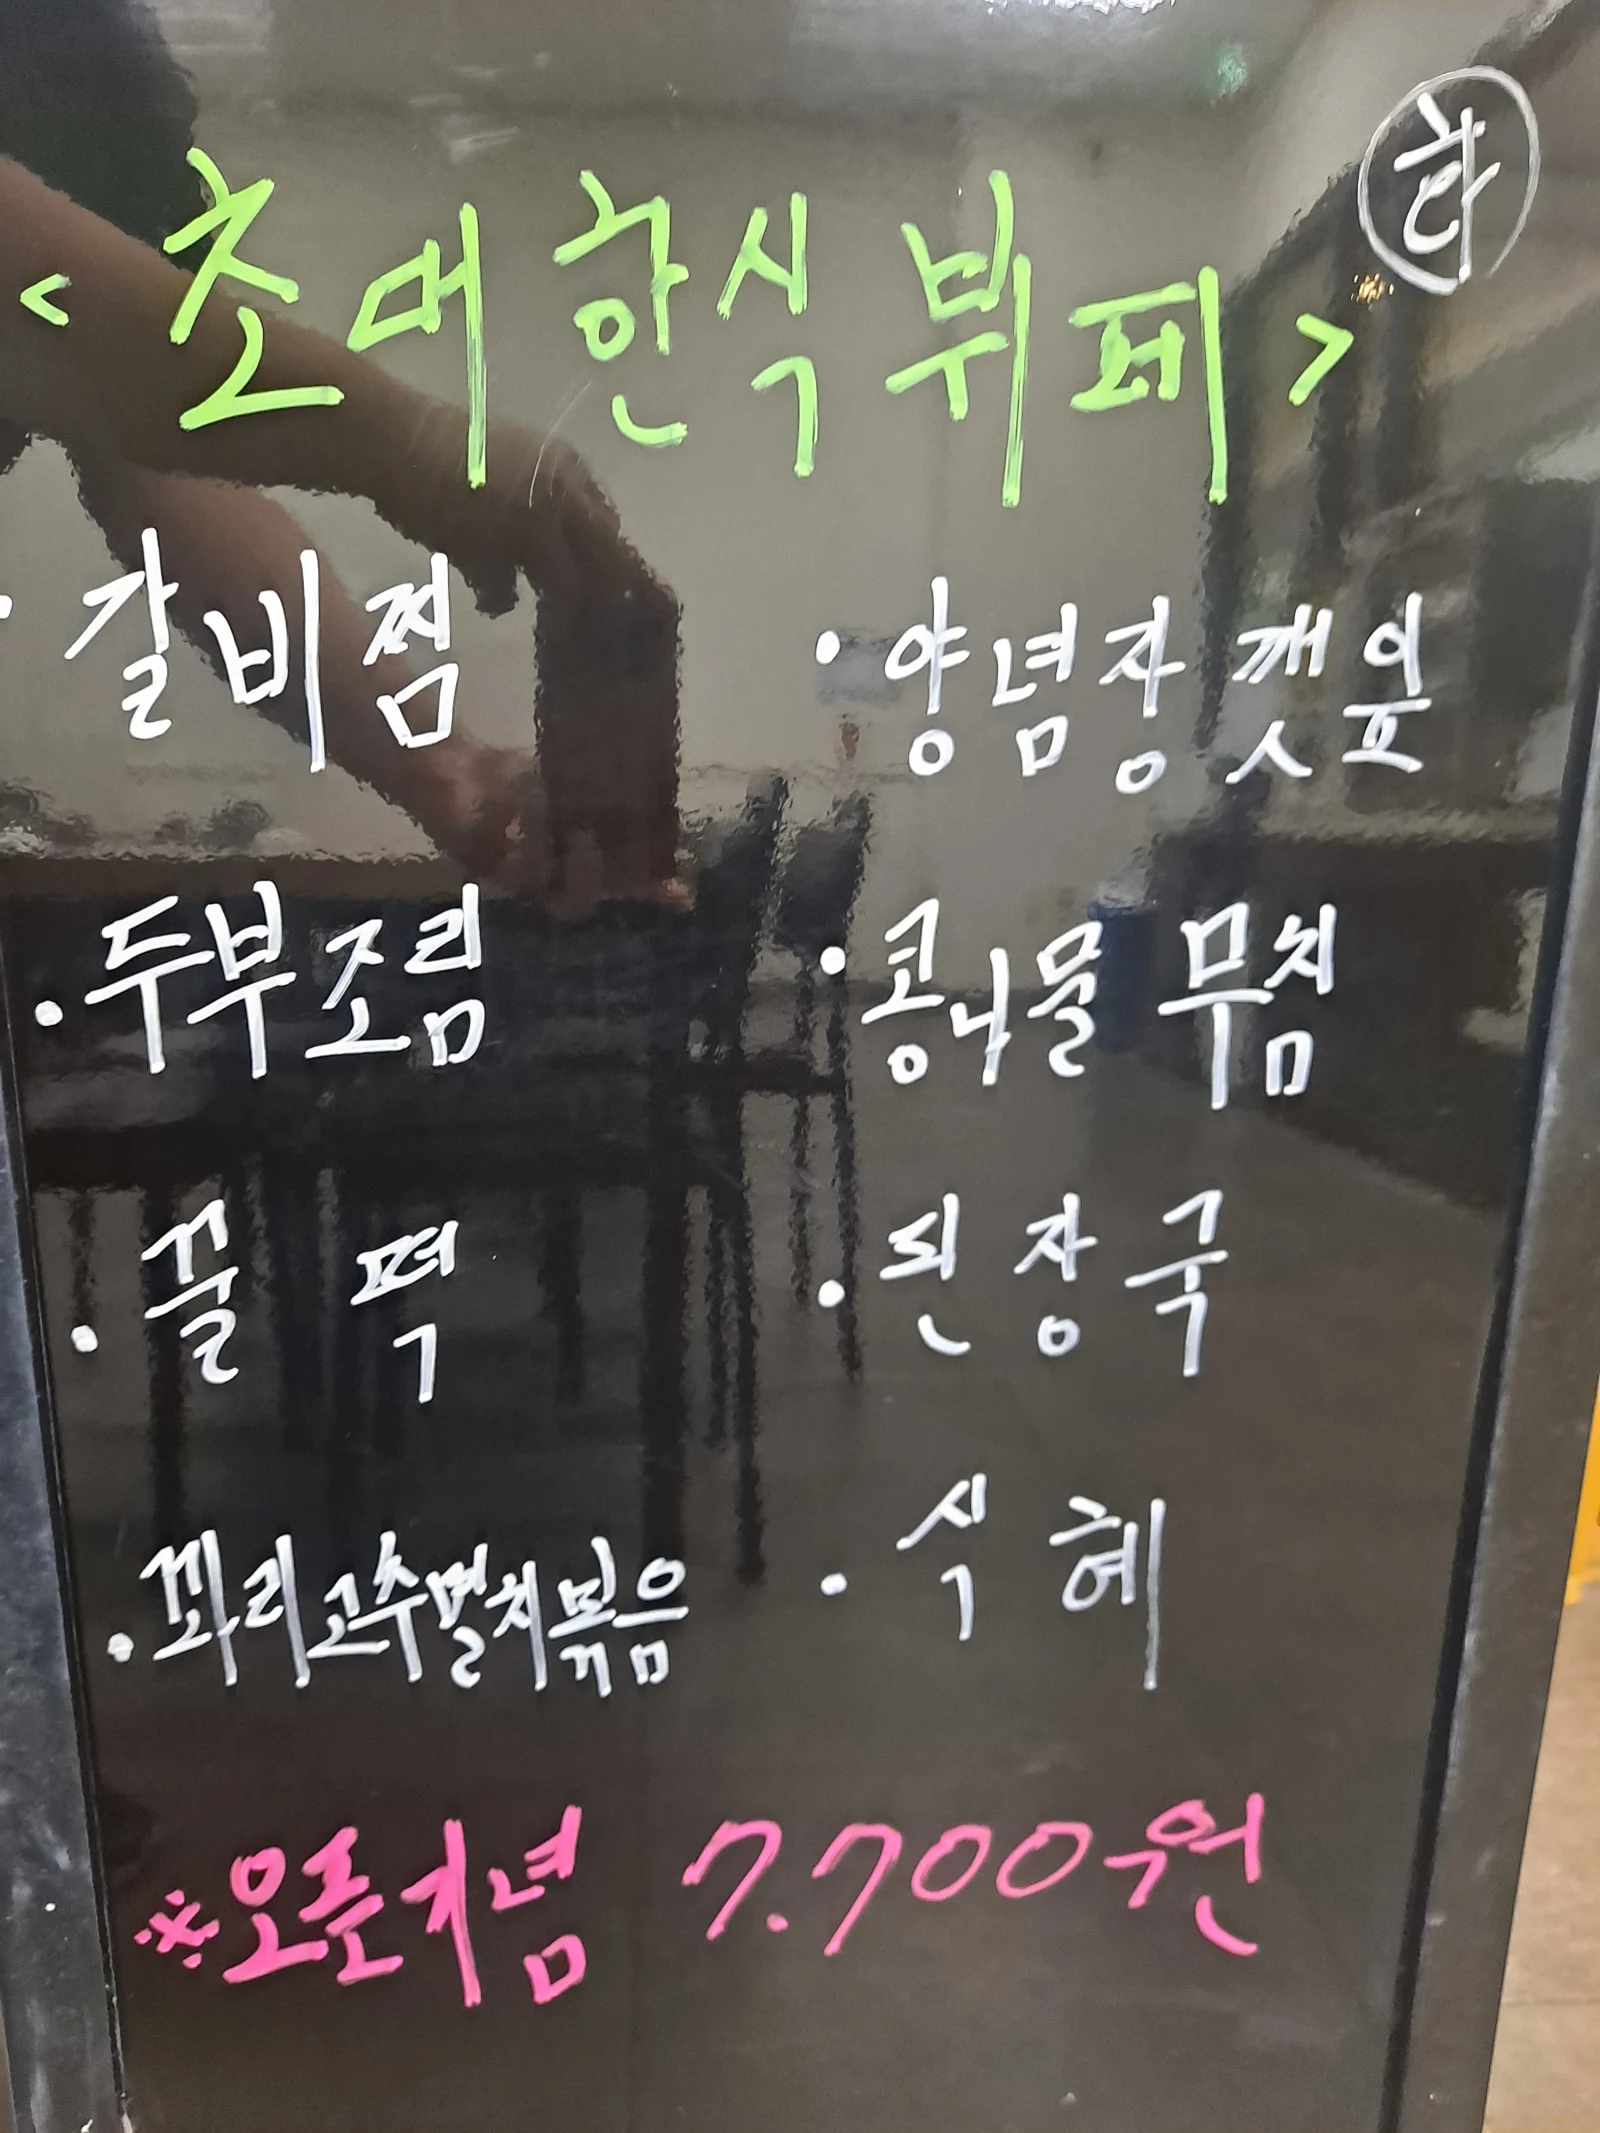 화
< 초대 한식 뷔페 >
· 갈비찜
· 양념장 깻잎
· 두부조림
· 콩나물 무침
· 꿀떡
· 된장국
· 꽈리고추멸치볶음
· 식혜
※오픈기념 7.700원